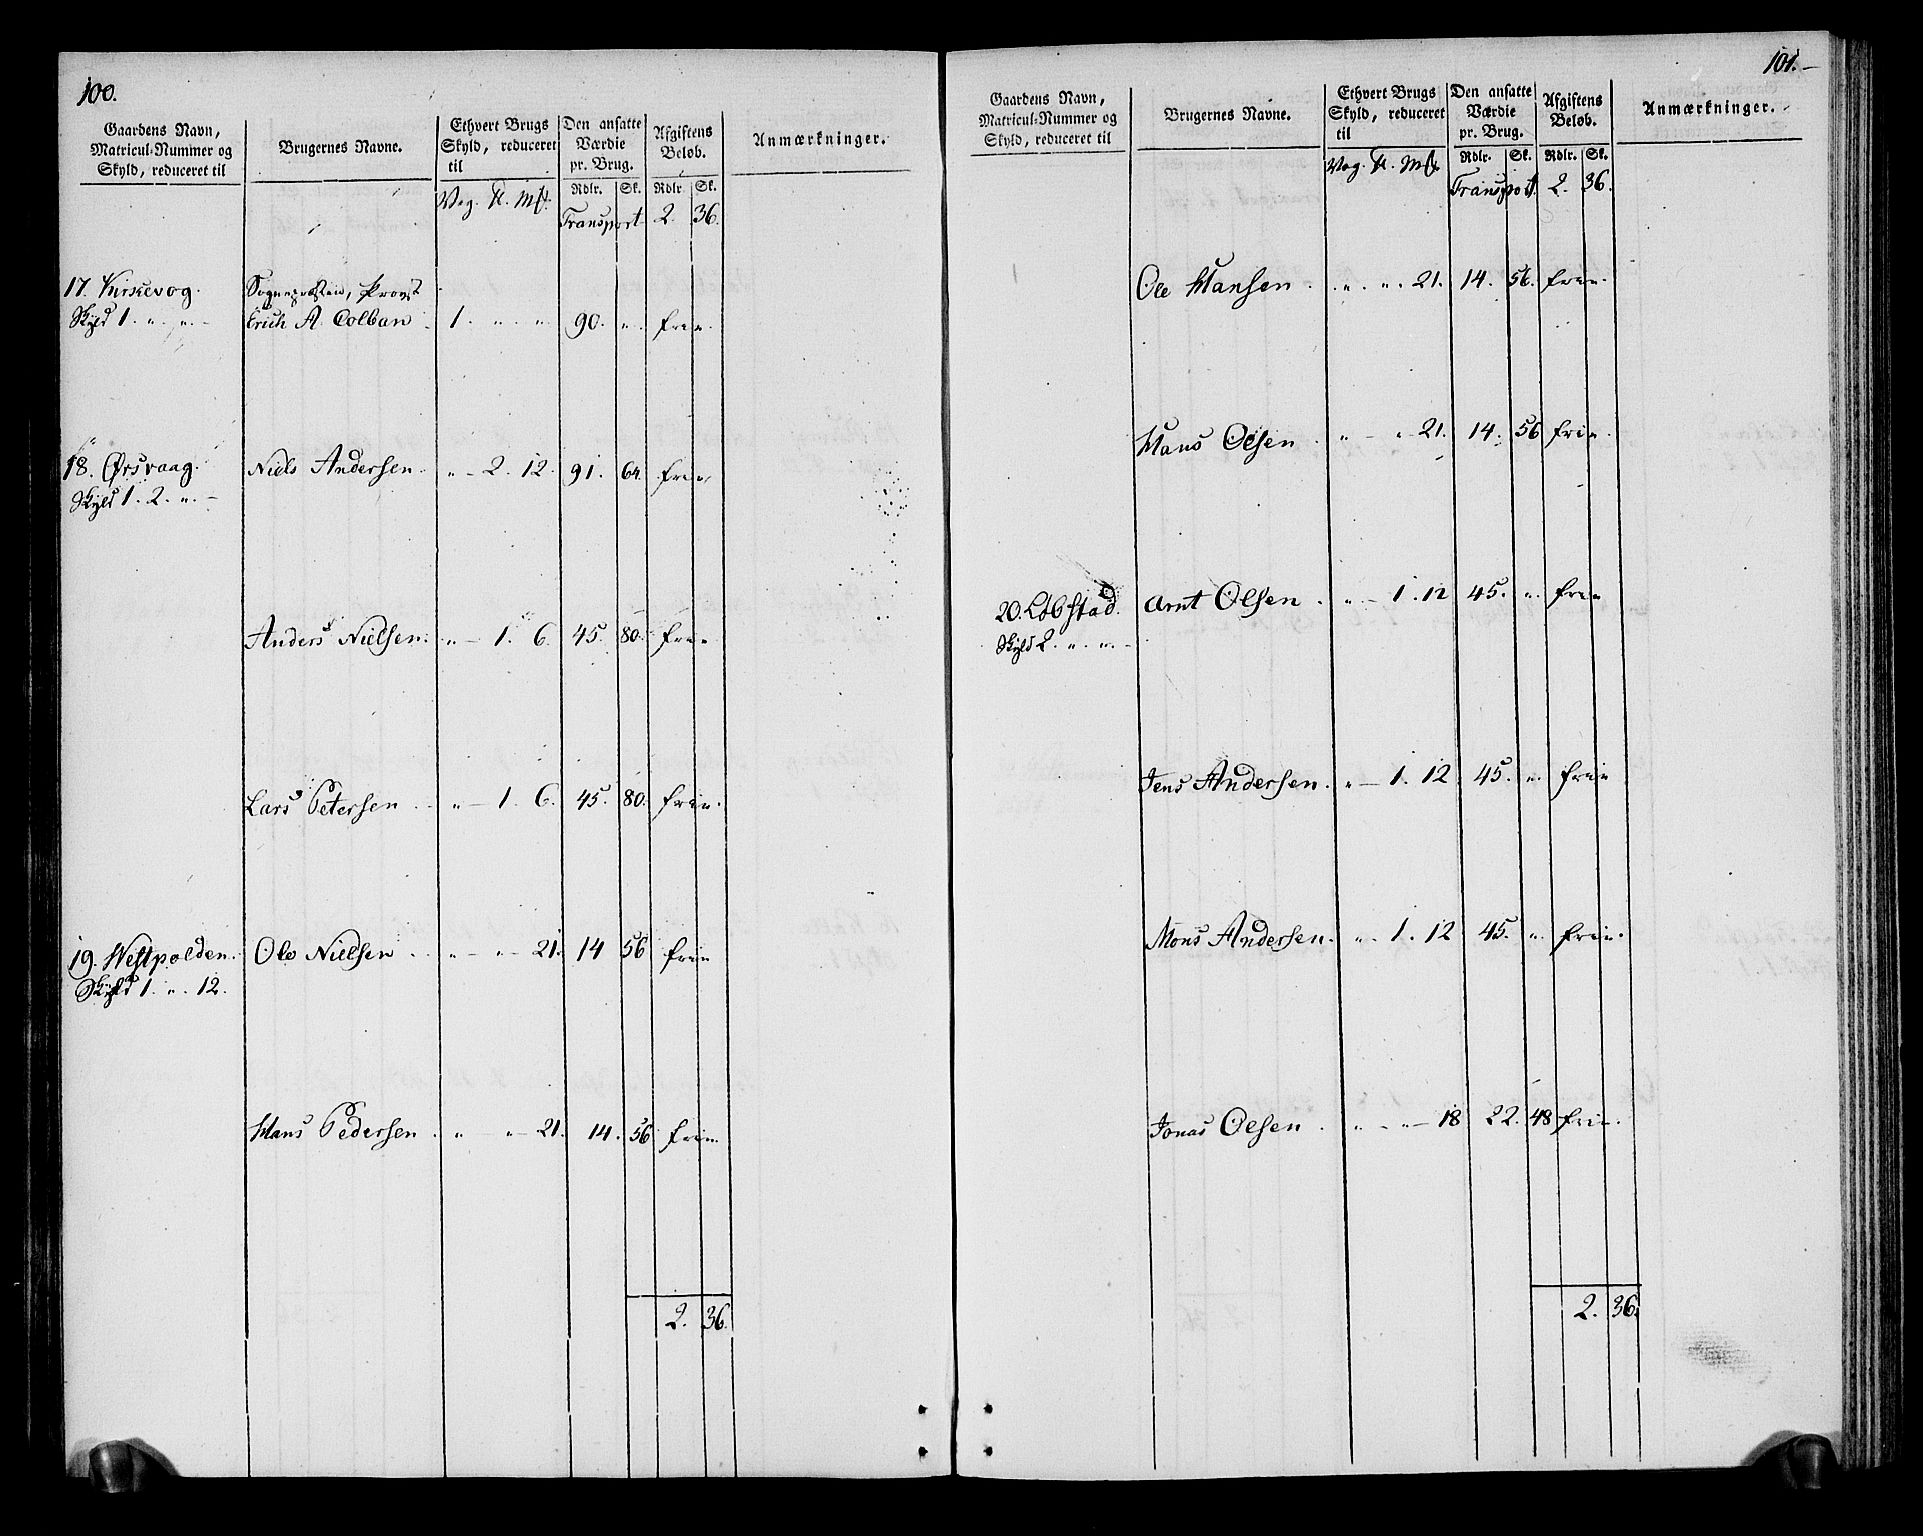 100.
Gaardens Navn, Matricul-Nummer og Skyld, reduceret til
Brugernes Navne.
Ethvert Brugs Skyld, reduceret til
Den ansatte Værdie pr. Brug.
Afgiftens Beløb.
Anmærkninger.
Rdlr. Sk. Rdlr. Sk.
Vog. Mk.
Transport 2. 36.
17. Kirkevog. Sognepræsten, Provst
Skyld 1. " " Erich A. Colban 1. " " 90. " frie.
18. Ørsvaag. Niels Andersen. " 2. 12. 91. 64. frie
Skyld 1. 2. "
Anders Nielsen. " 1. 6. 45. 80. frie
Lars Petersen " 1. 6. 45. 80. frie.
19. Westpolden. Ole Nielsen " " 21. 14 56 frie
Skyld 1. " 12.
Hans Pedersen " " 21. 14. 56 frie
2. 36.
101.
Gaardens Navn, Matricul-Nummer og Skyld, reduceret til
Brugernes Navne.
Ethvert Brugs Skyld, reduceret til
Den ansatte Værdie pr. Brug.
Afgiftens Beløb.
Anmærkninger.
Rdlr. Sk. Rdlr. Sk.
Vog. Mk.
Transport 2. 36.
Ole Hansen " " 21. 14. 56. frie.
Hans Olsen " " 21. 14. 56 frie.
20. Løbstad. Arnt Olsen " 1. 12 45. " frie
Skyld 2. " "
Jens Andersen. " 1. 12 45. " frie
Mons Andersen. " 1. 12 45. " frie.
Jonas Olsen " " 18 22. 48 frie.
2. 36.